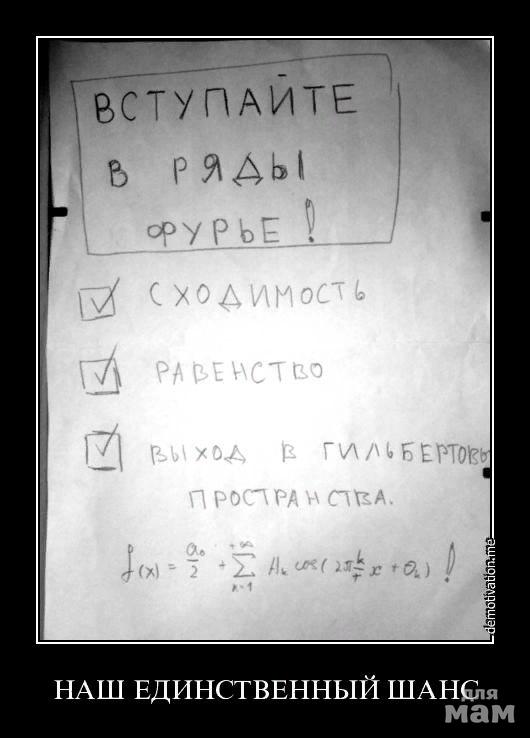 ВСТУПАЙТЕ
В РЯДЫ
ФУРЬЕ!
СХОДИМОСТЬ
РАВЕНСТВО
ВЫХОД В ГИЛЬБЕРТОВЫ
ПРОСТРАНСТВА.
f(x) = a₀/2 + ∑_{k=1}^{+∞} Aₖ cos(2π k/τ x + Θₖ)!
demotivation.me
НАШ ЕДИНСТВЕННЫЙ ШАНС
для
мам